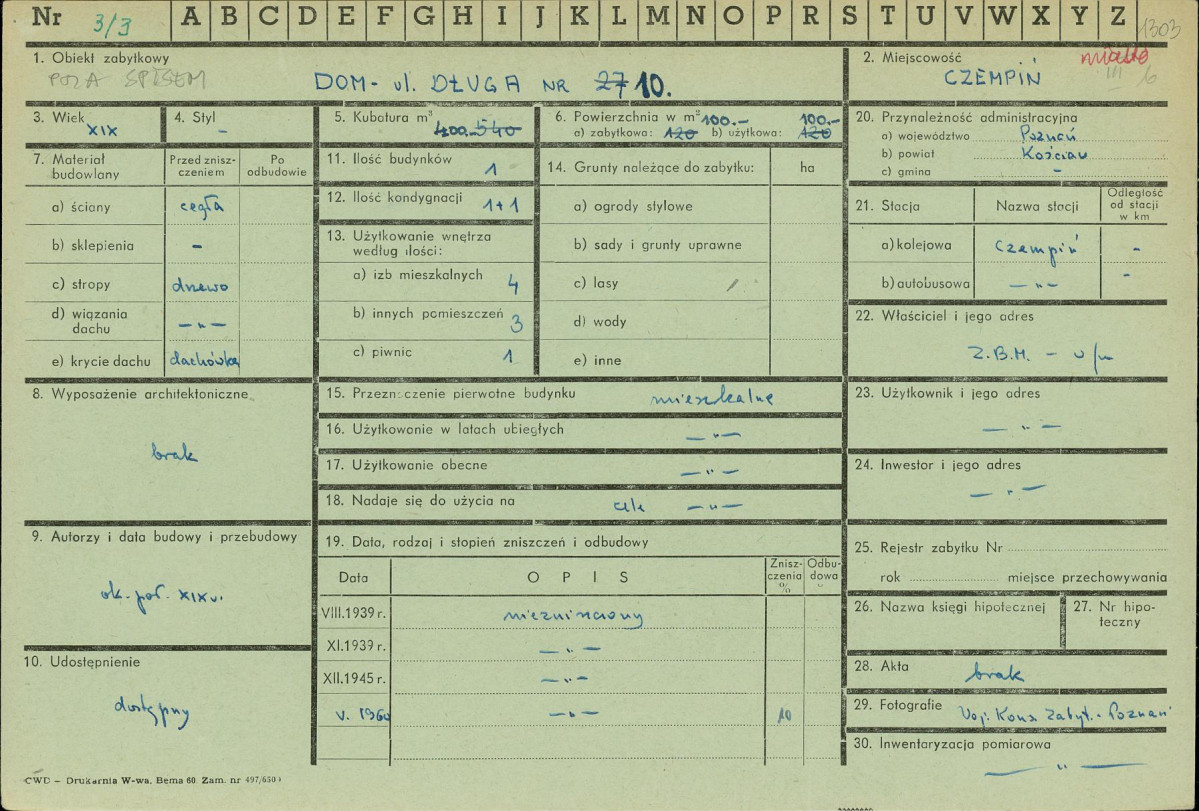 Nr 3/3 A B C D E F G H I J K L M N O P R S T U V W X Y Z 1303
1. Obiekt zabytkowy
POZA SPISEM
DOM - ul. DŁUGA NR 27 10.
2. Miejscowość
miasto
CZEMPIŃ
III 6
3. Wiek
XIX
4. Styl
-
5. Kubatura m³
400.- 540
6. Powierzchnia w m² 100.- 100.-
a) zabytkowa: 120 b) użytkowa: 120
20. Przynależność administracyjna
a) województwo Poznań
b) powiat Kościan
c) gmina -
7. Materiał budowlany
Przed znisz-
czeniem
Po
odbudowie
a) ściany cegła
b) sklepienia -
c) stropy drewo
d) wiązania
dachu — „ —
e) krycie dachu dachówka
11. Ilość budynków 1
12. Ilość kondygnacji 1+1
13. Użytkowanie wnętrza
według ilości:
a) izb mieszkalnych 4
b) innych pomieszczeń 3
c) piwnic 1
14. Grunty należące do zabytku: ha
a) ogrody stylowe
b) sady i grunty uprawne
c) lasy
d) wody
e) inne
21. Stacja Nazwa stacji
Odległość
od stacji
w km
a) kolejowa Czempiń -
b) autobusowa — „ — -
22. Właściciel i jego adres
Z.B.M. - w/m
8. Wyposażenie architektoniczne
brak
15. Przeznaczenie pierwotne budynku mieszkalne
16. Użytkowanie w latach ubiegłych — „ —
17. Użytkowanie obecne — „ —
18. Nadaje się do użycia na cele — „ —
23. Użytkownik i jego adres
— „ —
24. Inwestor i jego adres
— „ —
9. Autorzy i data budowy i przebudowy
ok. poł. XIX w.
10. Udostępnienie
dostępny
19. Data, rodzaj i stopień zniszczeń i odbudowy
Data OPIS
Znisz-
czenia
%
Odbu-
dowa
"
VIII.1939 r. niezniszczony
XI.1939 r. — „ —
XII.1945 r. — „ —
V. 1960 — „ — 10
25. Rejestr zabytku Nr
rok miejsce przechowywania
26. Nazwa księgi hipotecznej
27. Nr hipo-
teczny
28. Akta brak
29. Fotografie Woj. Kons. Zabyt. - Poznań
30. Inwentaryzacja pomiarowa
— „ —
CWD – Drukarnia W-wa. Bema 60. Zam. nr 497/650